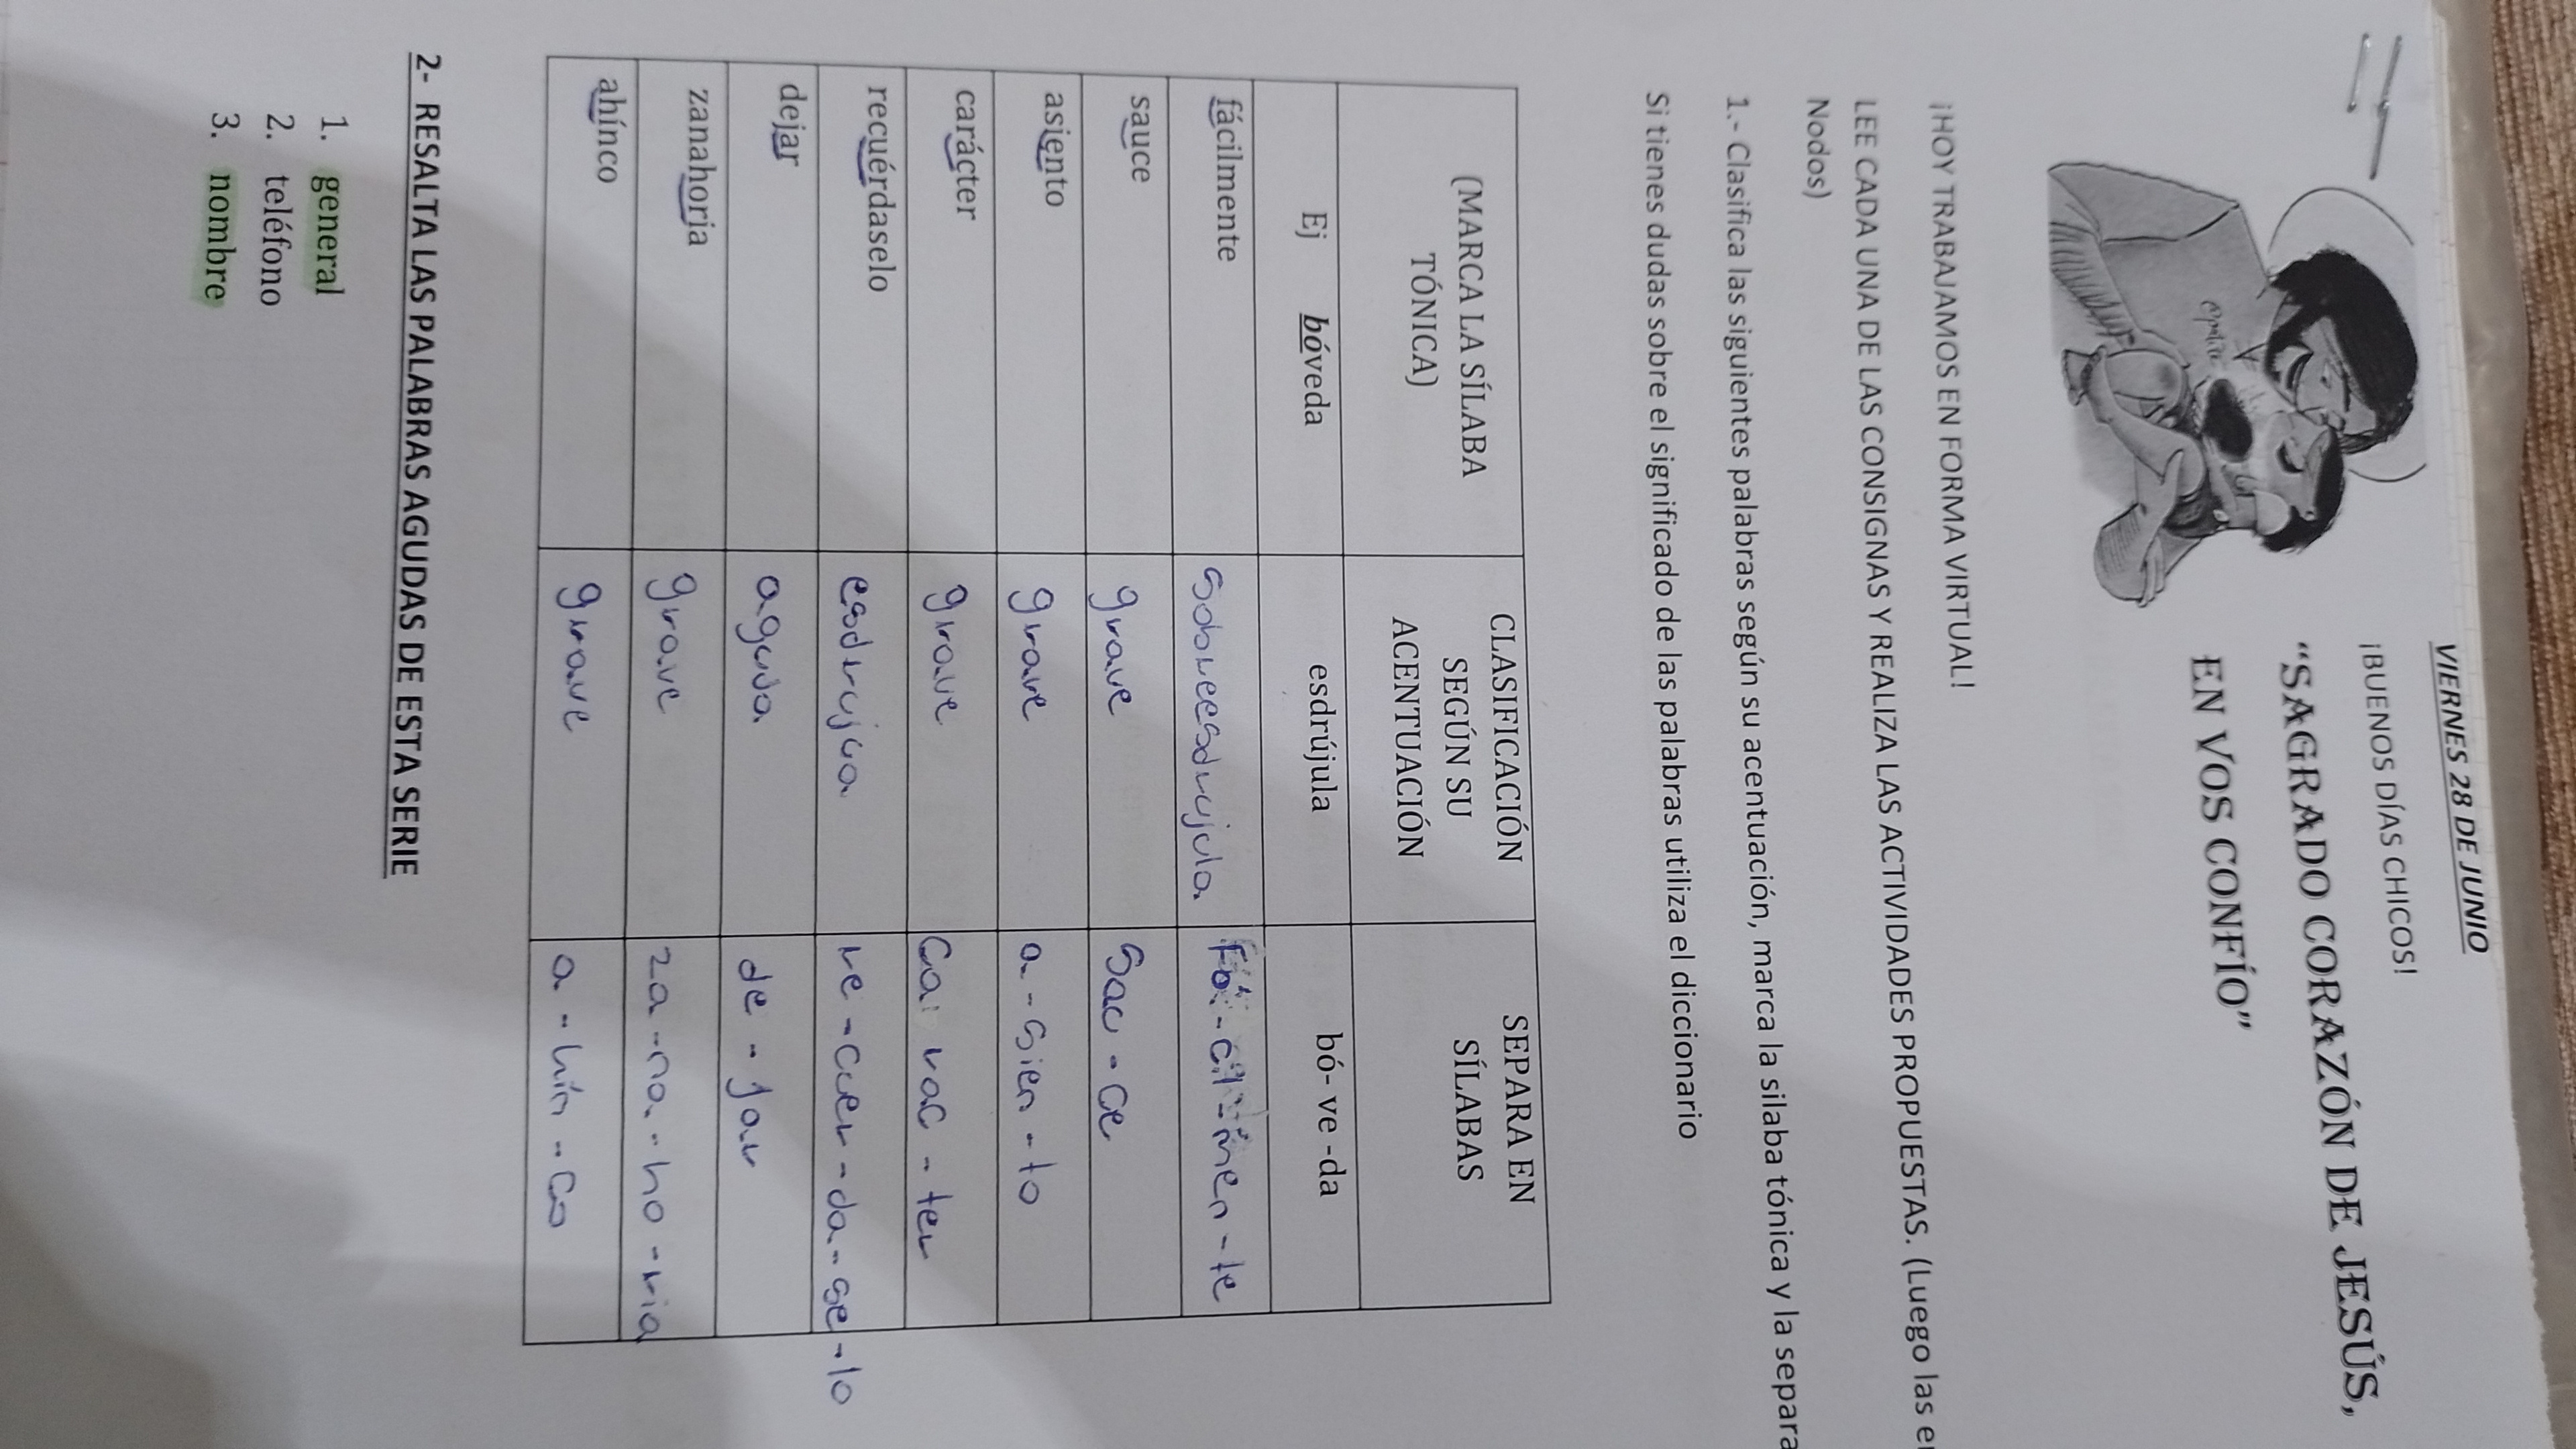 VIERNES 28 DE JUNIO
¡BUENOS DÍAS CHICOS!
“SAGRADO CORAZÓN DE JESÚS,
EN VOS CONFÍO”
¡HOY TRABAJAMOS EN FORMA VIRTUAL!
LEE CADA UNA DE LAS CONSIGNAS Y REALIZA LAS ACTIVIDADES PROPUESTAS. (Luego las
Nodos)
1.- Clasifica las siguientes palabras según su acentuación, marca la silaba tónica y la separa
Si tienes dudas sobre el significado de las palabras utiliza el diccionario
(MARCA LA SÍLABA TÓNICA) CLASIFICACIÓN SEGÚN SU ACENTUACIÓN SEPARA EN SÍLABAS
Ej bóveda esdrújula bó- ve -da
fácilmente sobreesdrujula Fá-cil-men-te
sauce grave Sau-ce
asiento grave a-sien-to
carácter grave Ca rac-ter
recuérdaselo esdrujua re-cuer-da-se-lo
dejar aguda de-jar
zanahoria grave za-na-ho-ria
ahínco grave a-hín-co
2- RESALTA LAS PALABRAS AGUDAS DE ESTA SERIE
1. general
2. teléfono
3. nombre